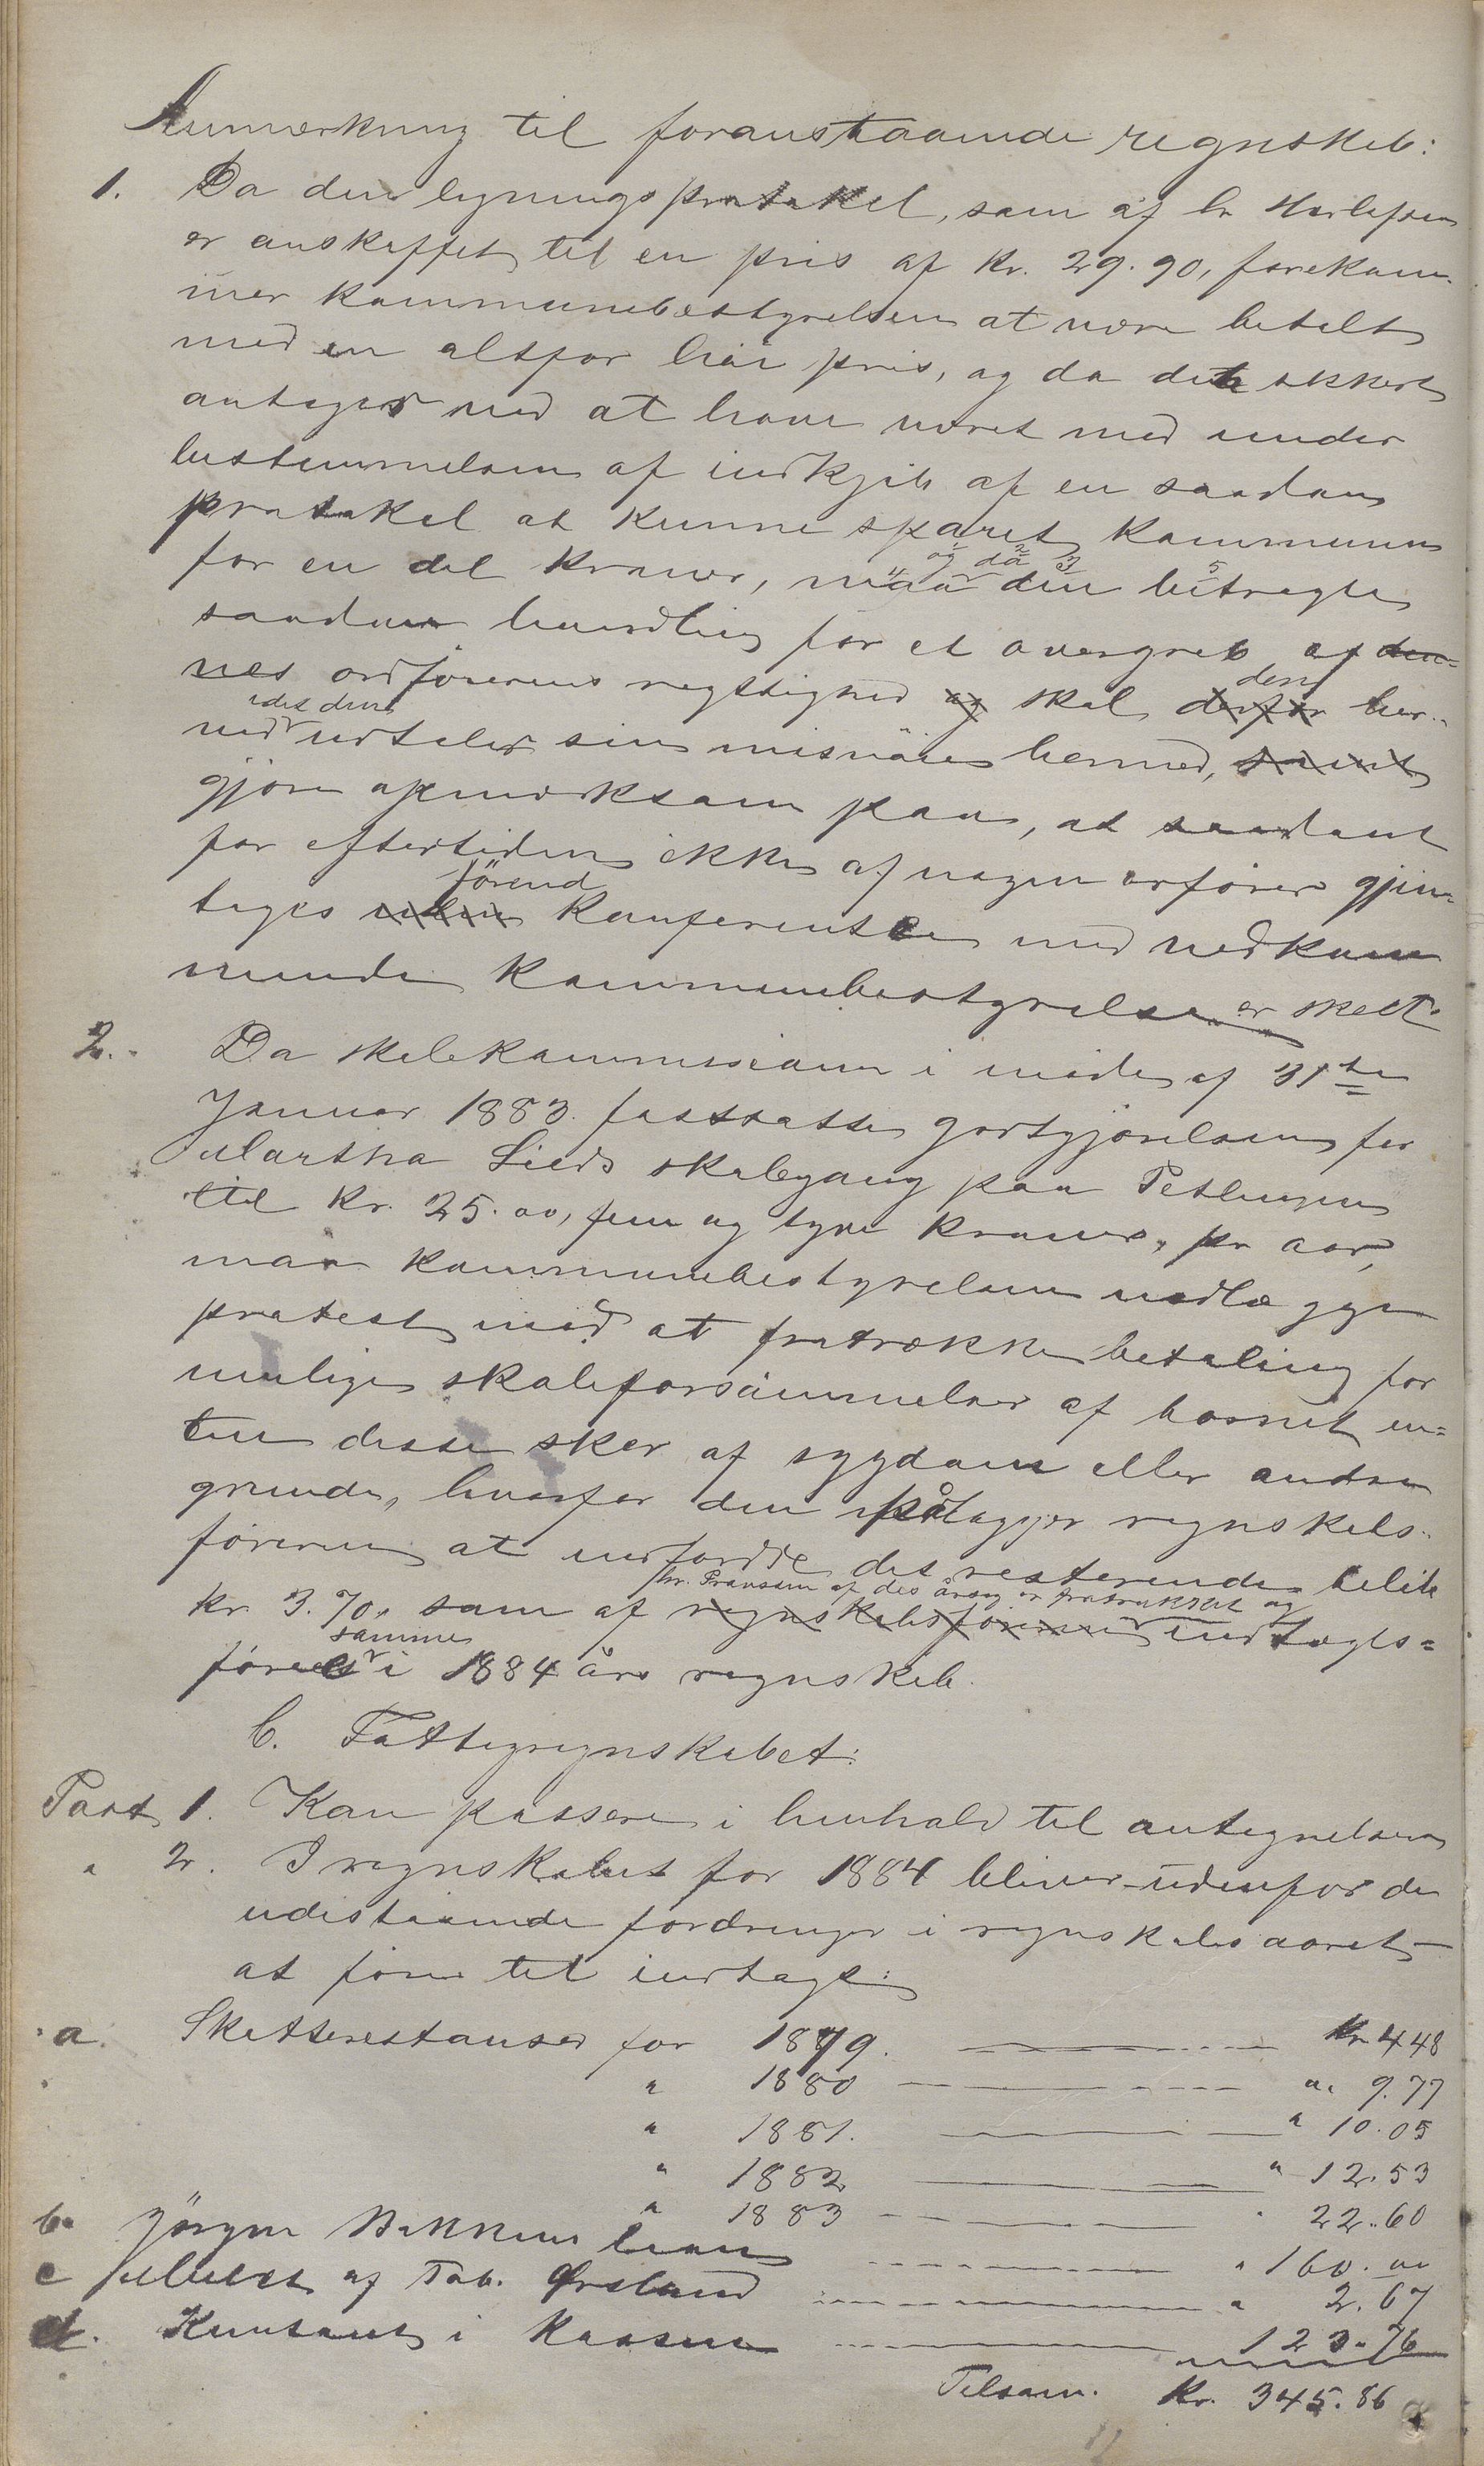 Anmærkning til foranstaaende regnskab:
1. Da den lignings protokol, som af hr
er anskaffet til en pris af kr. 29.90, forekom-
mer kommunebestyrelsen at være betalt
med en altfor høi pris, og da den sikkert
antager ved at have været med under
bestemmelsen af indkjøb af en saadan
protokol at kunne sparet kommunen
og da
for en del kroner, maa den betragte
saadan handling for et overgreb af den=
nes ordførerens regtighed og skal derfor her-
den
idet den
ved udtaler sin misnøie hermed, samt
gjøre opmærksom paa, at saadant
for eftertiden ikke af nogen orfører gjen-
førend
tages uden konferentse med vedkom
mende kommunebestyrelse er skeet.
2. Da skolekommissionen i møde af 31te
Januar 1883 fastsatte godtgjørelsen for
Martha Lieds skolegang paa Petlungen
til kr. 25.00, fem og tyve kroner, pr aar,
maa kommunebestyrelsen nedlægge
protest mod at fratrække betaling for
mulige skoleforsømmelser af barnet en=
ten disse sker af sygdom eller andre
grunde, hvorfor den pålægger regnskabs-
føreren at indfordre det resterende beløb
hr. Franssen af des årsag er fratrukket og
kr. 3.70, som af regnskabsføreren indtægts=
samme
føres i 1884 års regnskab.
C. Fattigregnskabet:
Post 1. Kan passere i henhold til antegnelsen
" 2. I regnskabet for 1884 bliver udenfor de
udestaaende fordringer i regnskabsaaret
at føre til indtægt:
a. Skatterestanser for 1879. Kr 4 48
" 1880 " 9.77
" 1881. " 10.05
" 1882 " 12.53
" 1883 " 22.60
b. Jørgen Bakkens laan " 160.00
c Mulct af Tob. Ørsland " 2.67
d. Kontant i Kassen 123.76
Tilsam. Kr. 345.86